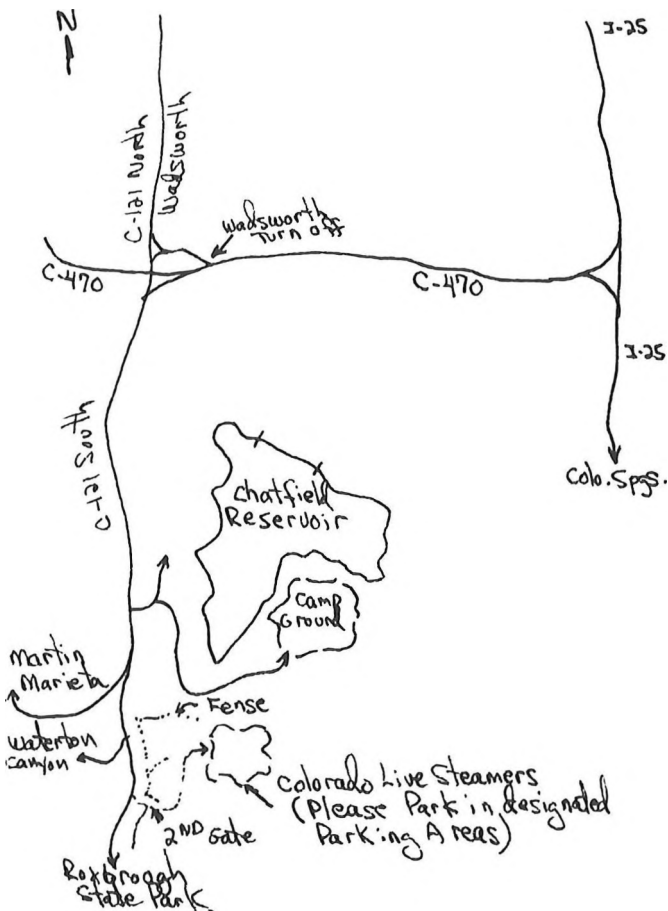 N
I-25
C-121 North
Wadsworth
Wadsworth
Turn off
C-470
C-470
I-25
C-121 South
Colo. Spgs.
Chatfield
Reservoir
Camp
Ground
Martin
Marieta
Fense
Waterton
Canyon
Colorado Live Steamers
(Please Park in designated
Parking Areas)
2ND Gate
Roxbrough
State Park